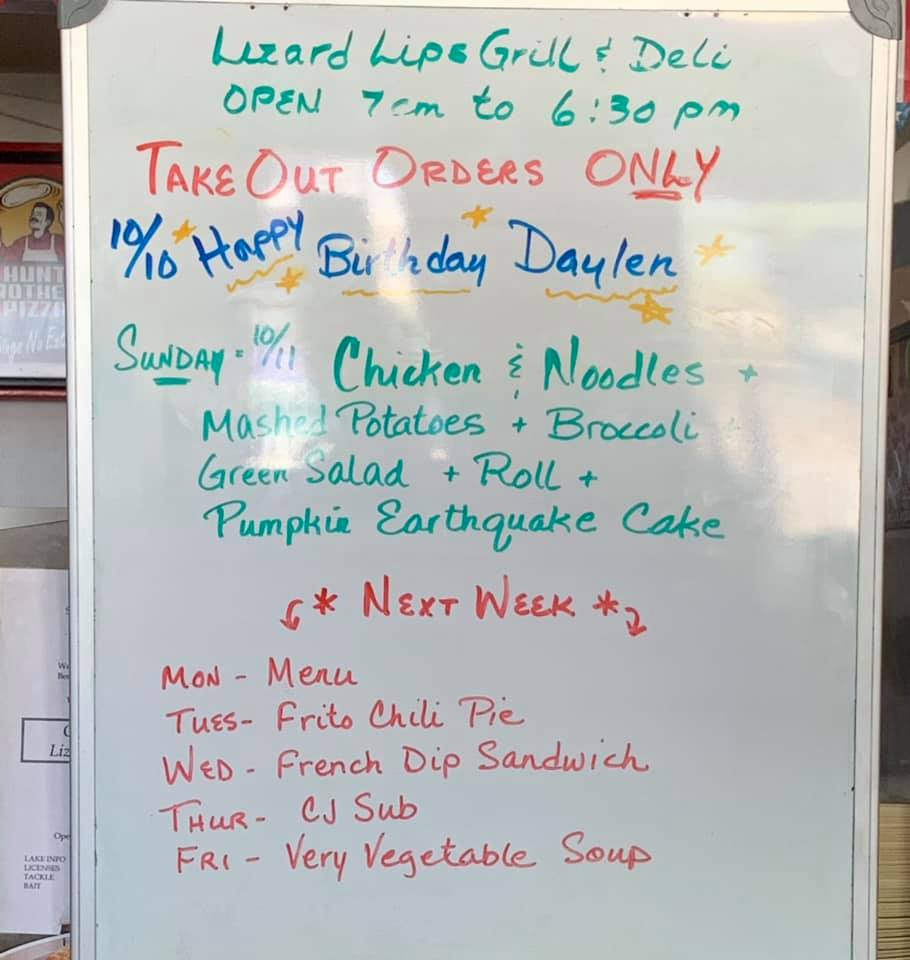 Lizard Lips Grill & Deli
OPEN 7am to 6:30 pm
TAKE OUT ORDERS ONLY
10/10 Happy Birthday Daylen
SUNDAY - 10/11 Chicken & Noodles +
Mashed Potatoes + Broccoli +
Green Salad + Roll +
Pumpkin Earthquake Cake
* NEXT WEEK *
MON - Menu
TUES - Frito Chili Pie
WED - French Dip Sandwich
THUR - CJ Sub
FRI - Very Vegetable Soup
HUNT
PIZZ
Liz
Ope
LAKE INFO
LICENSES
TACKLE
BAIT